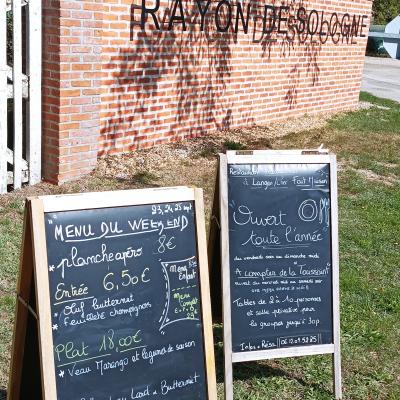 RAYON DE SOLOGNE
23, 24, 25 sept
"MENU DU WEEKEND
* plancheapéro 8€
Entrée 6,50€
* Œuf butternut
* Feuilleté champignons
Menu Enfant
Menu Complet
Plat 18,00€
* Veau Marengo et légumes de saison
Lard & Butternut
Restaurant
à Langon/Cher Fait Maison
"Ouvert
toute l'année
du vendredi soir au dimanche midi
et
A compter de la Toussaint"
ouvert du mardi midi au samedi soir
Tables de 2 à 10 personnes
et salle privative pour
les groupes jusqu'à 30p
Infos & Résa